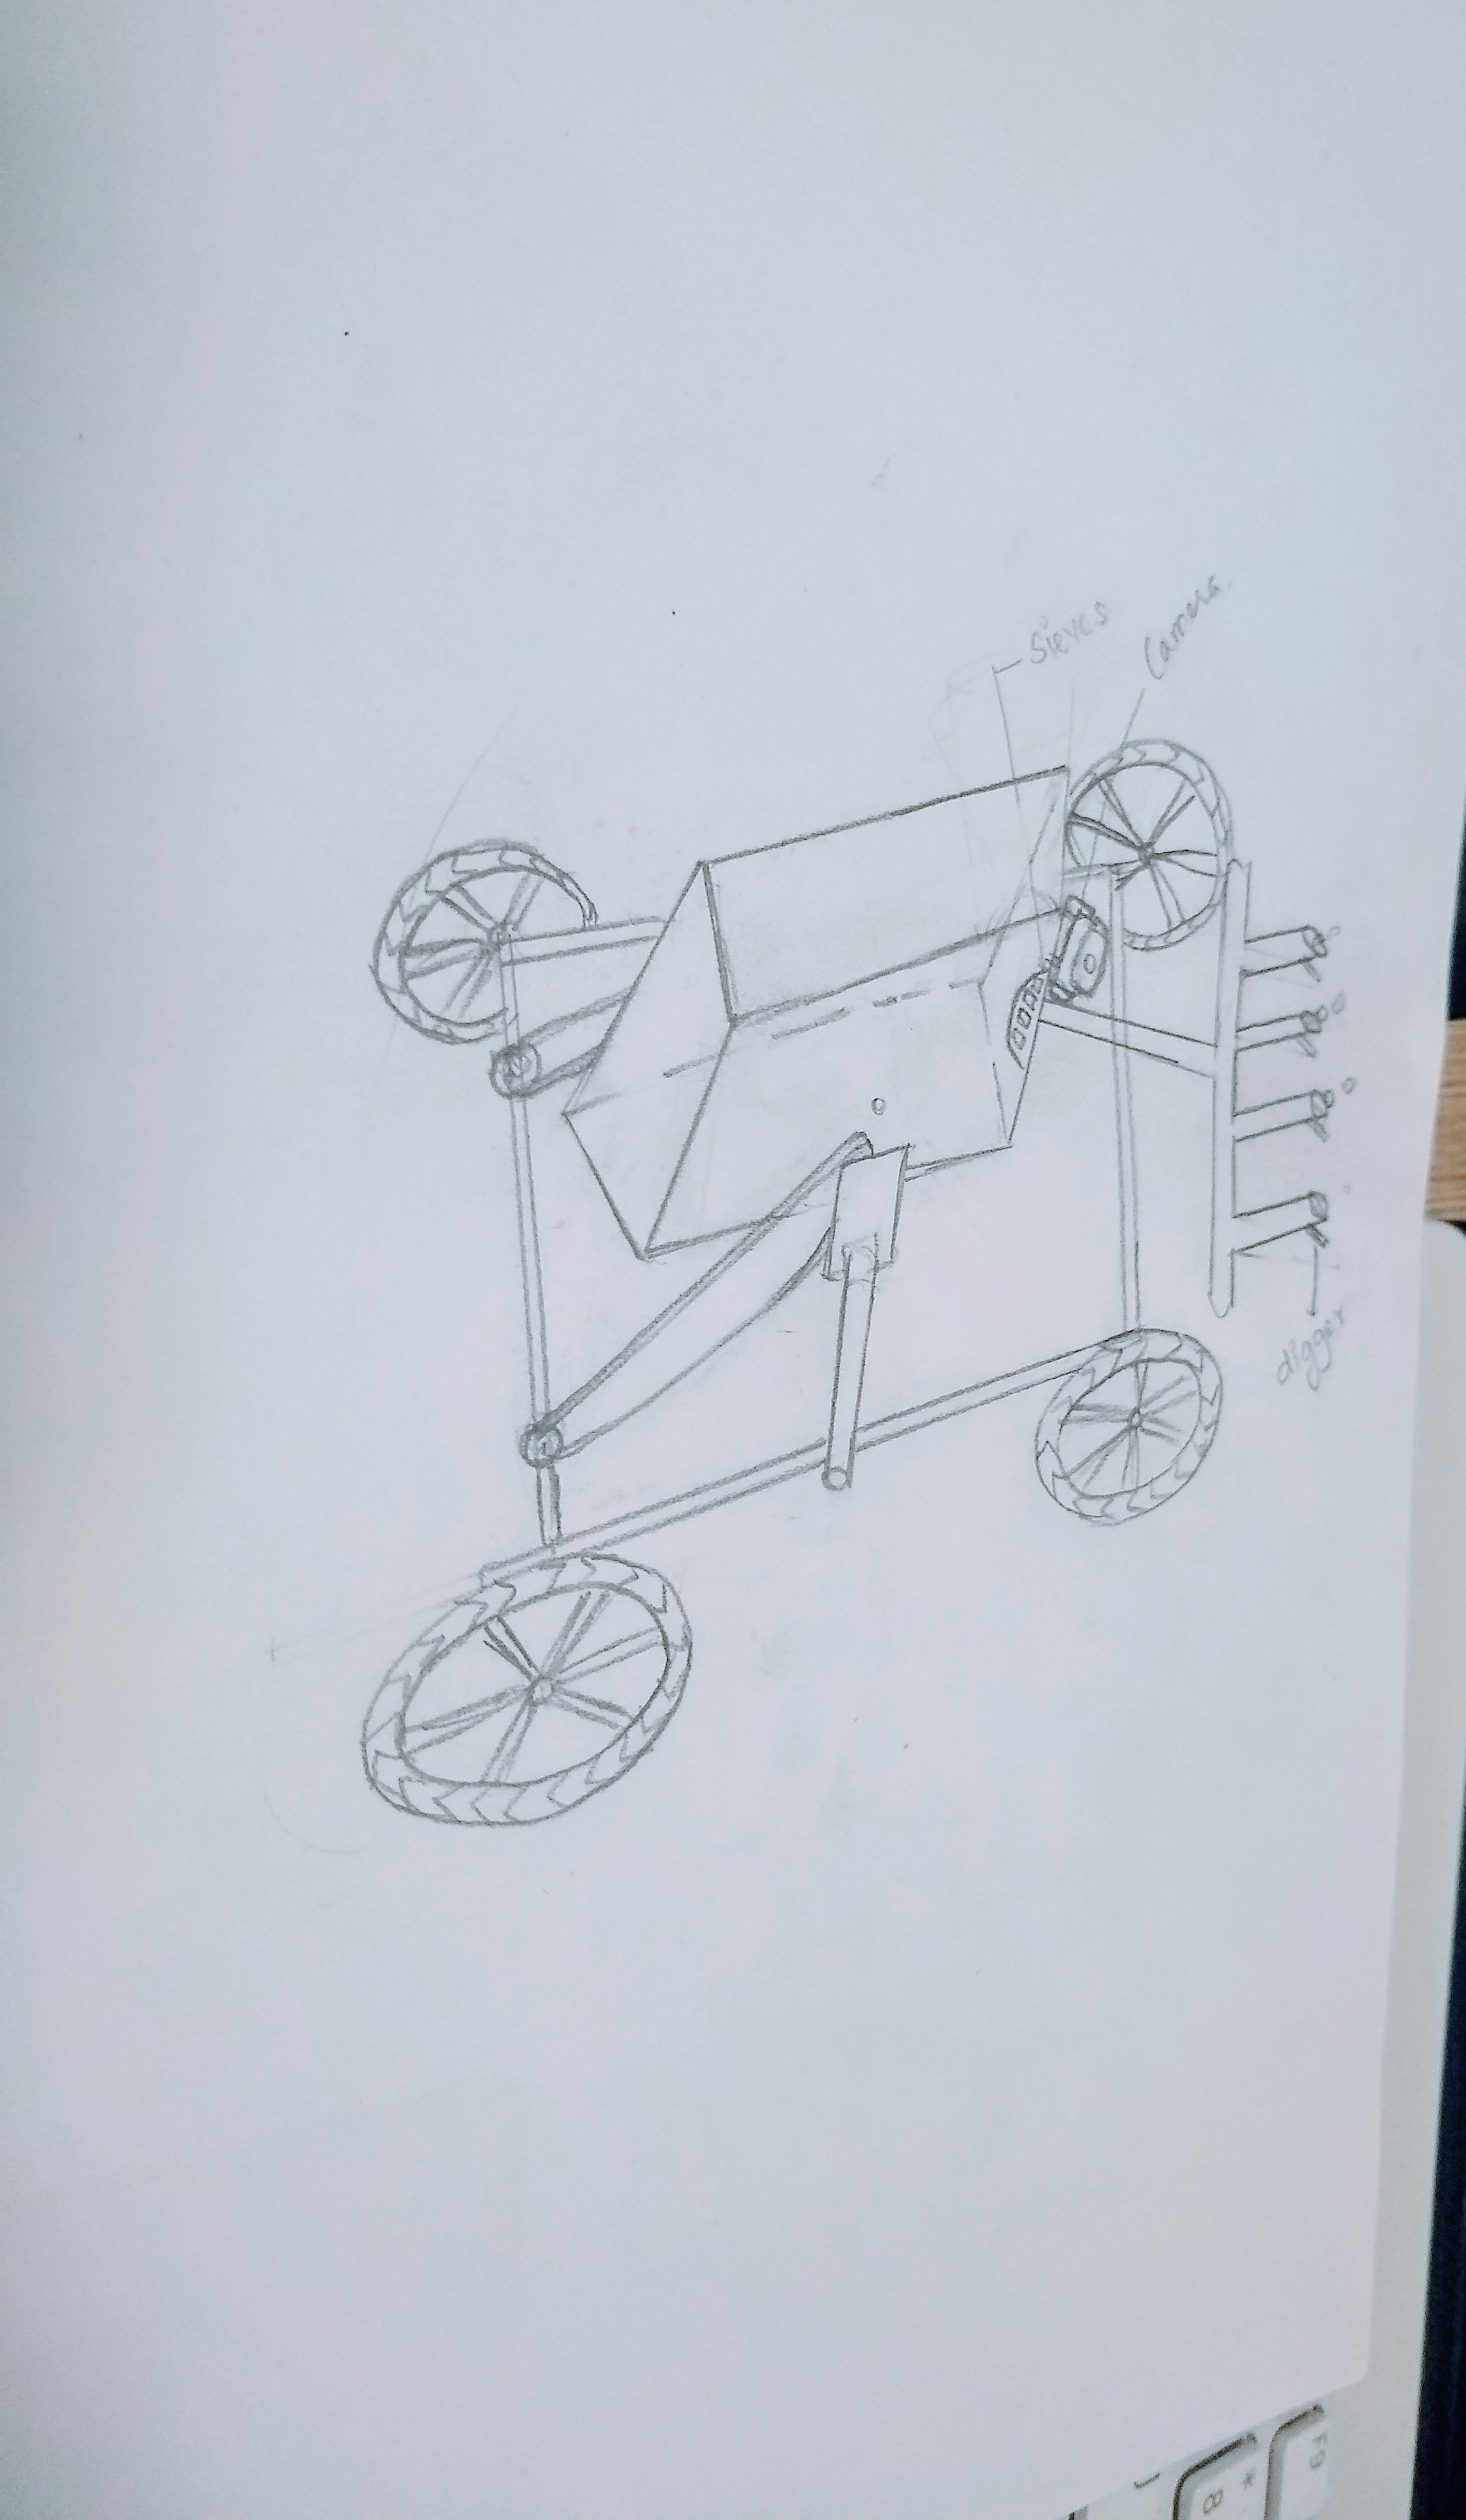 Sieves
Camera.
digger
F9
*
8